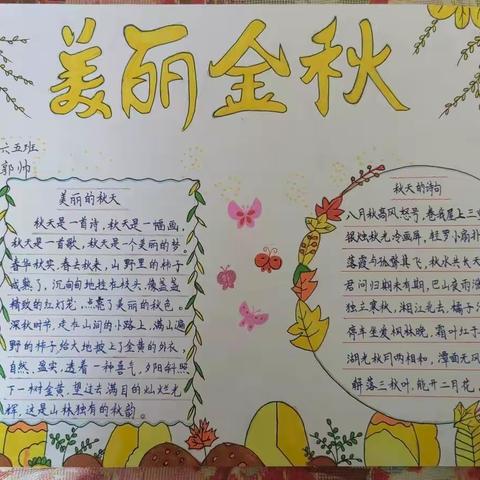 美丽金秋
六五班
郭帅
美丽的秋天
秋天是一首诗,秋天是一幅画,
秋天是一首歌,秋天是一个美丽的梦。
春华秋实,春去秋来,山野里的柿子
成熟了,沉甸甸地挂在枝头,像盏盏
精致的红灯笼,点亮了美丽的秋色。
深秋时节,走在山间的小路上,满山遍
野的柿子给大地披上了金黄的外衣,
自然,盈实,透着一种喜气,夕阳斜照
下一树金黄,望过去满目的灿烂光
辉,这是山林独有的秋韵。
秋天的诗句
八月秋高风怒号,卷我屋上三
银烛秋光冷画屏,轻罗小扇扑
落霞与孤鹜齐飞,秋水共长天
君问归期未有期,巴山夜雨涨
独立寒秋,湘江北去,橘子
停车坐爱枫林晚,霜叶红于
湖光秋月两相和,潭面无风
解落三秋叶,能开二月花